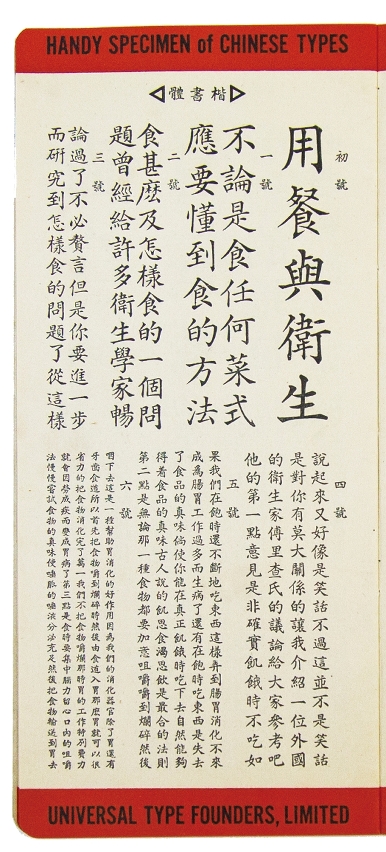 HANDY SPECIMEN of CHINESE TYPES
楷書體
初號
用餐與衛生
一號
不論是食任何菜式
應要懂到食的方法
二號
食甚麽及怎樣食的一個問
題曾經給許多衛生學家暢
三號
論過了不必贅言但是你要進一步
而研究到怎樣食的問題了從這樣
四號
說起來又好像是笑話不過這並不是笑話
是對你有莫大關係的讓我介紹一位外國
的衛生家傅里查氏的議論給大家參考吧
他的第一點意見是非確實飢餓時不吃如
五號
果我們在飽時還不斷地吃東西這樣弄到腸胃消化不來
成為腸胃工作過多而生病了還有在飽時吃東西是失去
了食品的真味倘使你能在真正飢餓時吃下去自然能夠
得着食品的真味古人說的飢思食渴思飲是最合的法則
第二點是無論那一種食物都要加意咀嚼嚼到爛碎然後
六號
咽下去這是一種幫助胃消化的好作用因為我們的消化器官除了胃還有
牙齒食道所以首先把食物嚼到爛碎時然後由食道入胃那麽胃就可以很
省力的把食物消化完了萬一我們不把食物嚼爛那時胃的工作特別費力
就會因勞成疾而變成胃病了第三點是食時要集中腦力留心口內的咀嚼
法慢慢嘗試食物的真味使唾的唾液分泌充足然後把食物輸送到胃去
UNIVERSAL TYPE FOUNDERS, LIMITED